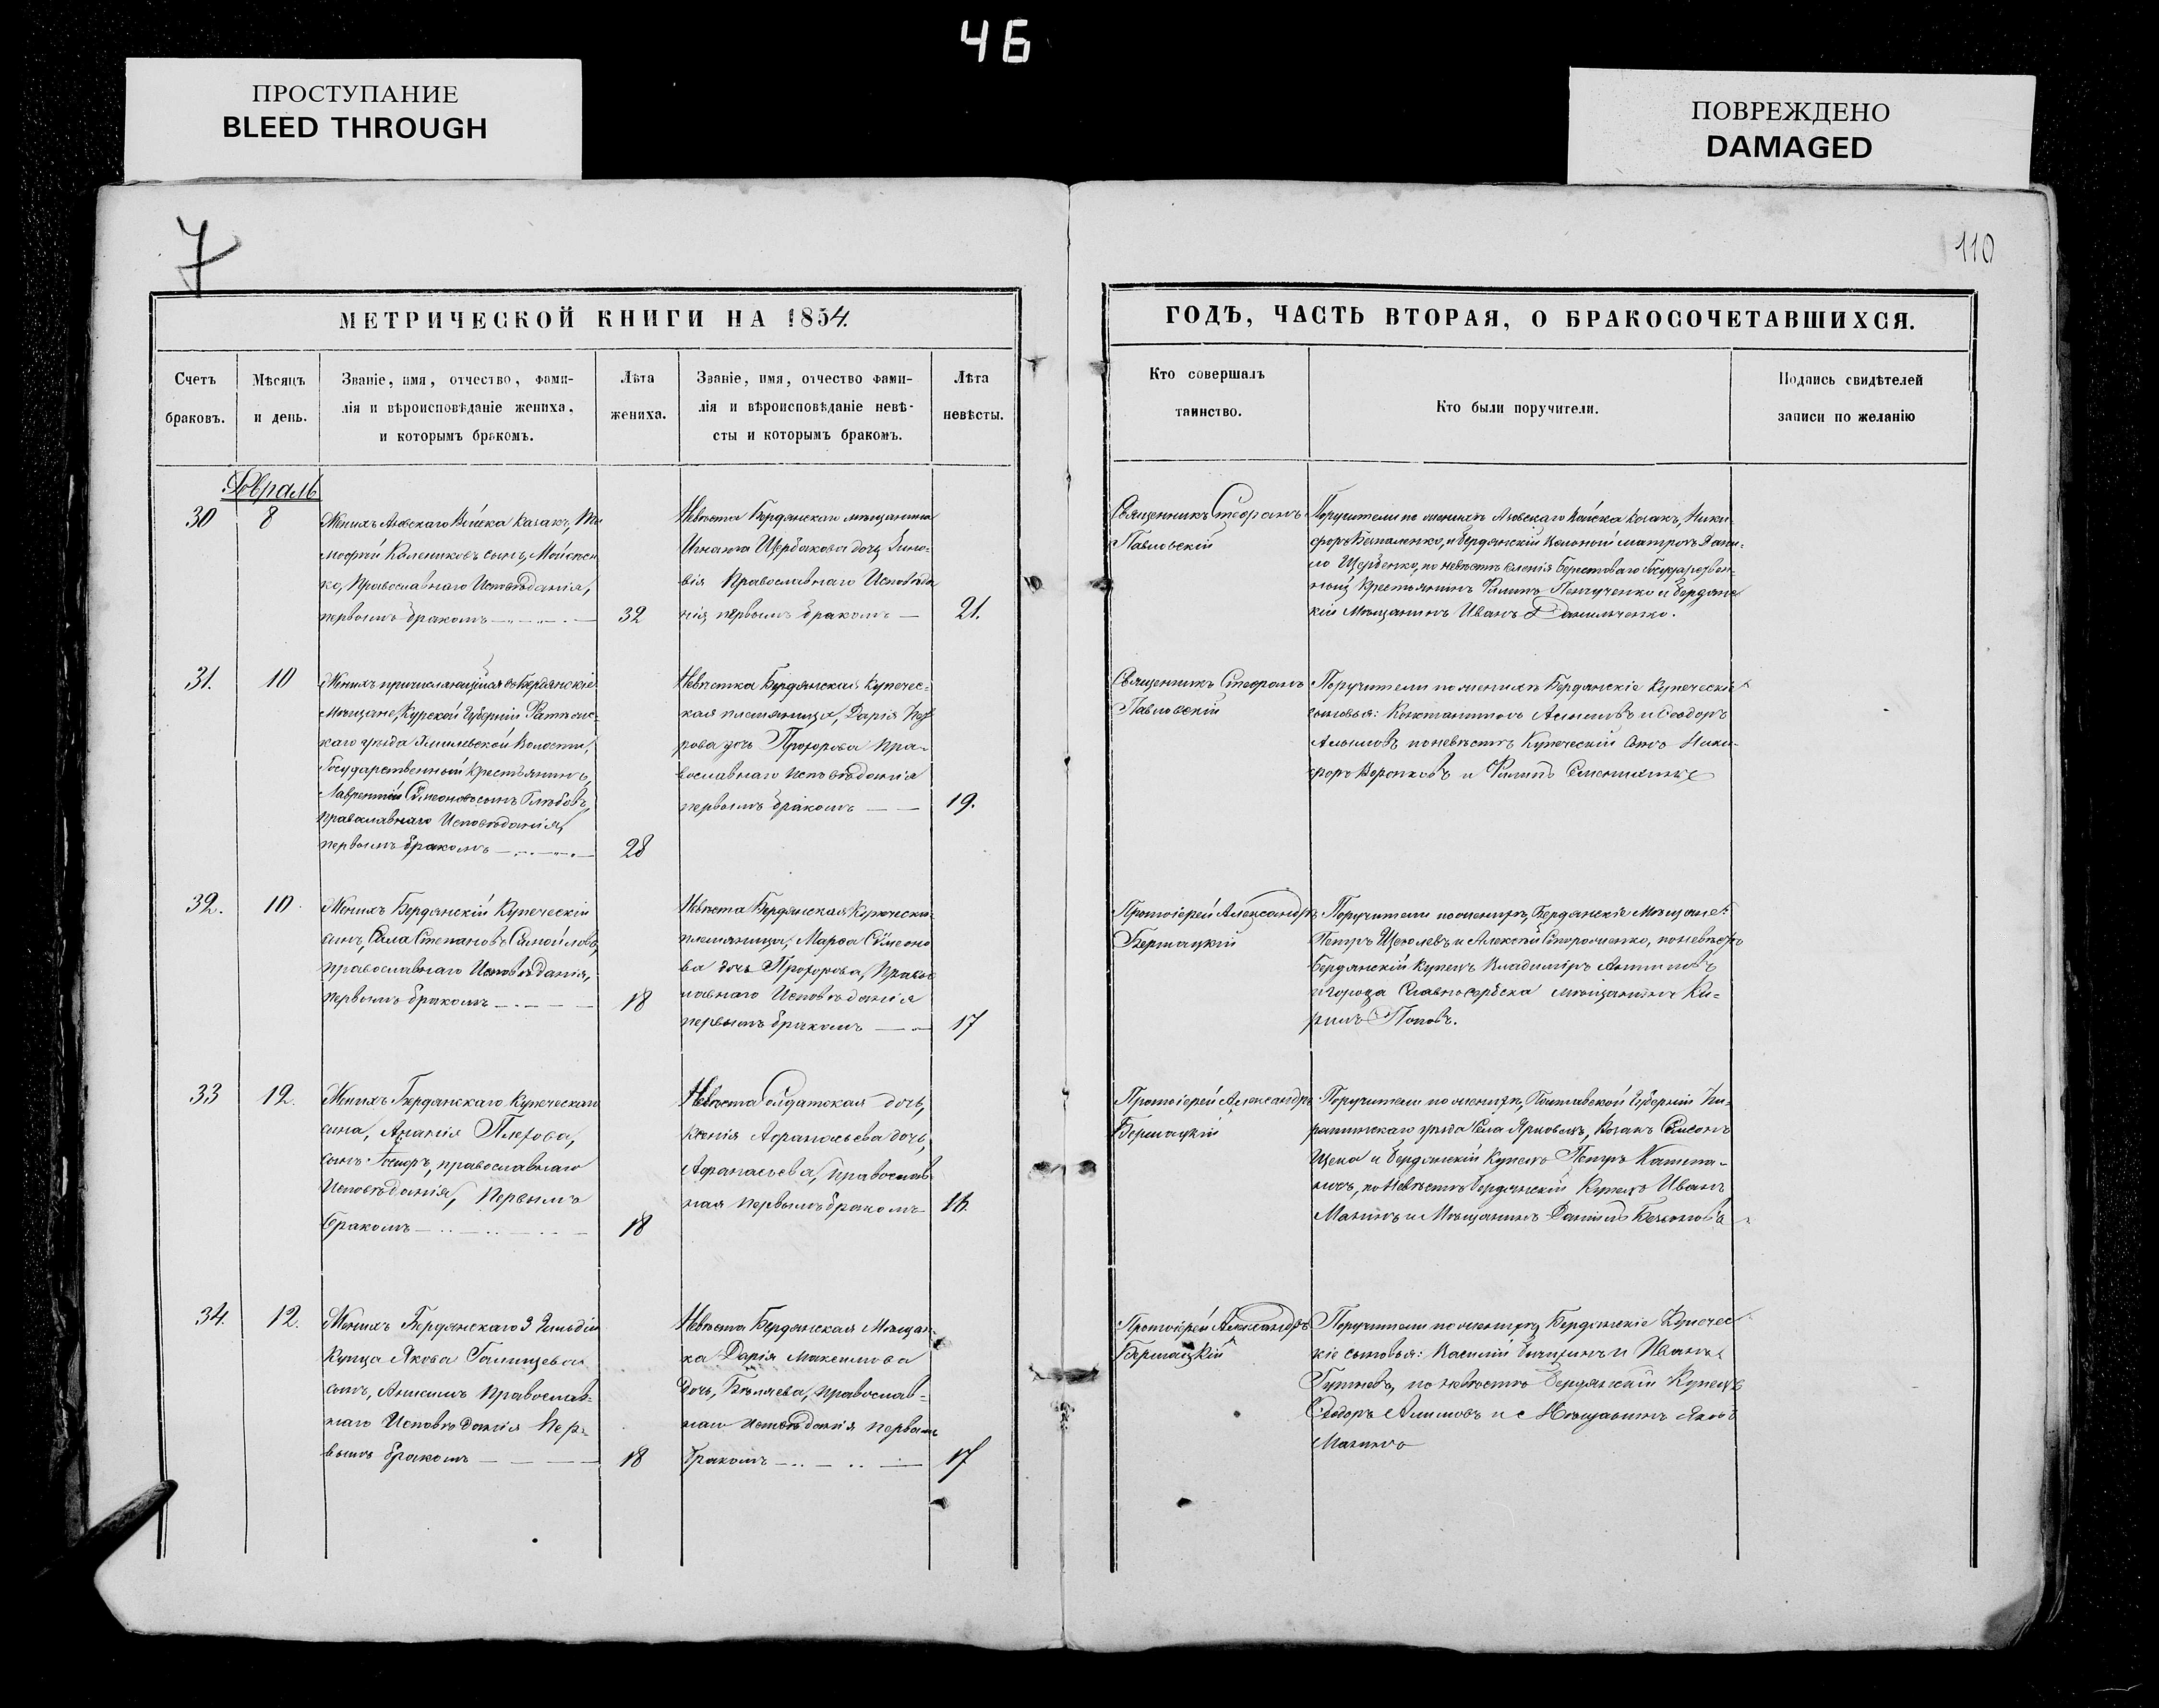 46
ПРОСТУПАНИЕ
BLEED THROUGH
ПОВРЕЖДЕНО
DAMAGED
7
110
МЕТРИЧЕСКОЙ КНИГИ НА 1854.
ГОДЪ, ЧАСТЬ ВТОРАЯ, О БРАКОСОЧЕТАВШИХСЯ.
Счетъ
браковъ.
Мѣсяцъ
и день.
Званіе, имя, отчество, фами-
лія и вѣроисповѣданіе жениха,
и которымъ бракомъ.
Лѣта
жениха.
Званіе, имя, отчество фами-
лія и вѣроисповѣданіе невѣ-
сты и которымъ бракомъ.
Лѣта
невѣсты.
Кто совершалъ
таинство.
Кто были поручители.
Подпись свидѣтелей
записи по желанію
Февраль
30
8
Женихъ Азовскаго Войска Казакъ, Ти
мофей Колениковъ сынъ, Мойсеен
ко, Православнаго Исповѣданія,
первымъ бракомъ
32
Невѣста Бердянскаго мѣщанина
Игната Щербакова дочь Зино-
вія Православнаго Исповѣда
нія, первымъ бракомъ
21.
Священникъ Стефанъ
Павловскій
Поручители по женихѣ Азовскаго Войска Казакъ, Ники-
форъ и Бердянскій матросъ Дани-
ло Щербенко, по невѣстѣ селенія Берестоваго Государствен-
ный Крестьянинъ Филипъ и Бердянс
кій Мѣщанинъ Иванъ Данильченко.
31.
10
Женихъ причисляющійся въ Бердянскіе
Мѣщане, Курской Губерніи
каго уѣзда Волости,
Государственный Крестьянинъ,
Лаврентій Симеоновъ сынъ Глѣбовъ,
Православнаго Исповѣданія,
первымъ бракомъ
28
Невѣстка Бердянская Купечес-
кая племяница, Дарія
рова дочь Прохорова Пра-
вославнаго Исповѣданія
первымъ бракомъ
19.
Священникъ Стефанъ
Павловскій
Поручители по женихѣ Бердянскіе Купеческіе
сыновья: Константинъ и Ѳеодоръ
по невѣстѣ Купеческій сынъ Ники-
форъ Воронковъ и Филипъ
32.
10
Женихъ Бердянскій Купеческій
сынъ, Сила Степановъ Самойловъ,
православнаго Исповѣданія,
первымъ бракомъ
18
Невѣста Бердянская Купеческая
племяница, Марѳа Сѵмеоно
ва дочь Прохорова, Правос
лавнаго Исповѣданія
первымъ бракомъ
17
Протоіерей Александръ
Бершацкій
Поручители по женихѣ, Бердянскіе Мѣщане:
Петръ Щеголевъ и Алексѣй по невѣстѣ
Бердянскій Купецъ Владиміръ Антиповъ
и города Славяносербска мѣщанинъ Ки-
рилъ Поповъ.
33
12.
Женихъ Бердянскаго Купеческаго
сына, Ананія Плехова,
сынъ Петръ, православнаго
Исповѣданія, Первымъ
бракомъ
18
Невѣста Солдатская дочь,
Ксенія Афанасьева дочь,
Афанасьева, Православ
ная первымъ бракомъ
16.
Протоіерей Александръ
Бершацкій
Поручители по женихѣ, Полтавской Губерніи Пи-
рятинскаго уѣзда Села Казакъ Симеонъ
Щека и Бердянскій Купецъ Петръ
по Невѣстѣ Бердянскій Купецъ Иванъ
Мазинъ и Мѣщанинъ Даніилъ
34.
12.
Женихъ Бердянскаго 3 Гильдіи
Купца Якова Галищева
сынъ, Анисимъ Православ-
наго Исповѣданія Пер-
вымъ бракомъ
18
Невѣста Бердянская Мѣщан-
ка Дарія Максимова
дочь, Бѣляева, православ-
наго Исповѣданія первымъ
бракомъ
17
Протоіерей Александръ
Бершацкій
Поручители по женихѣ Бердянскіе Купечес
кіе сыновья: Василій и Иванъ
по невѣстѣ Бердянскій Купецъ
Ѳедоръ и Мѣщанинъ Яковъ
Мазинъ